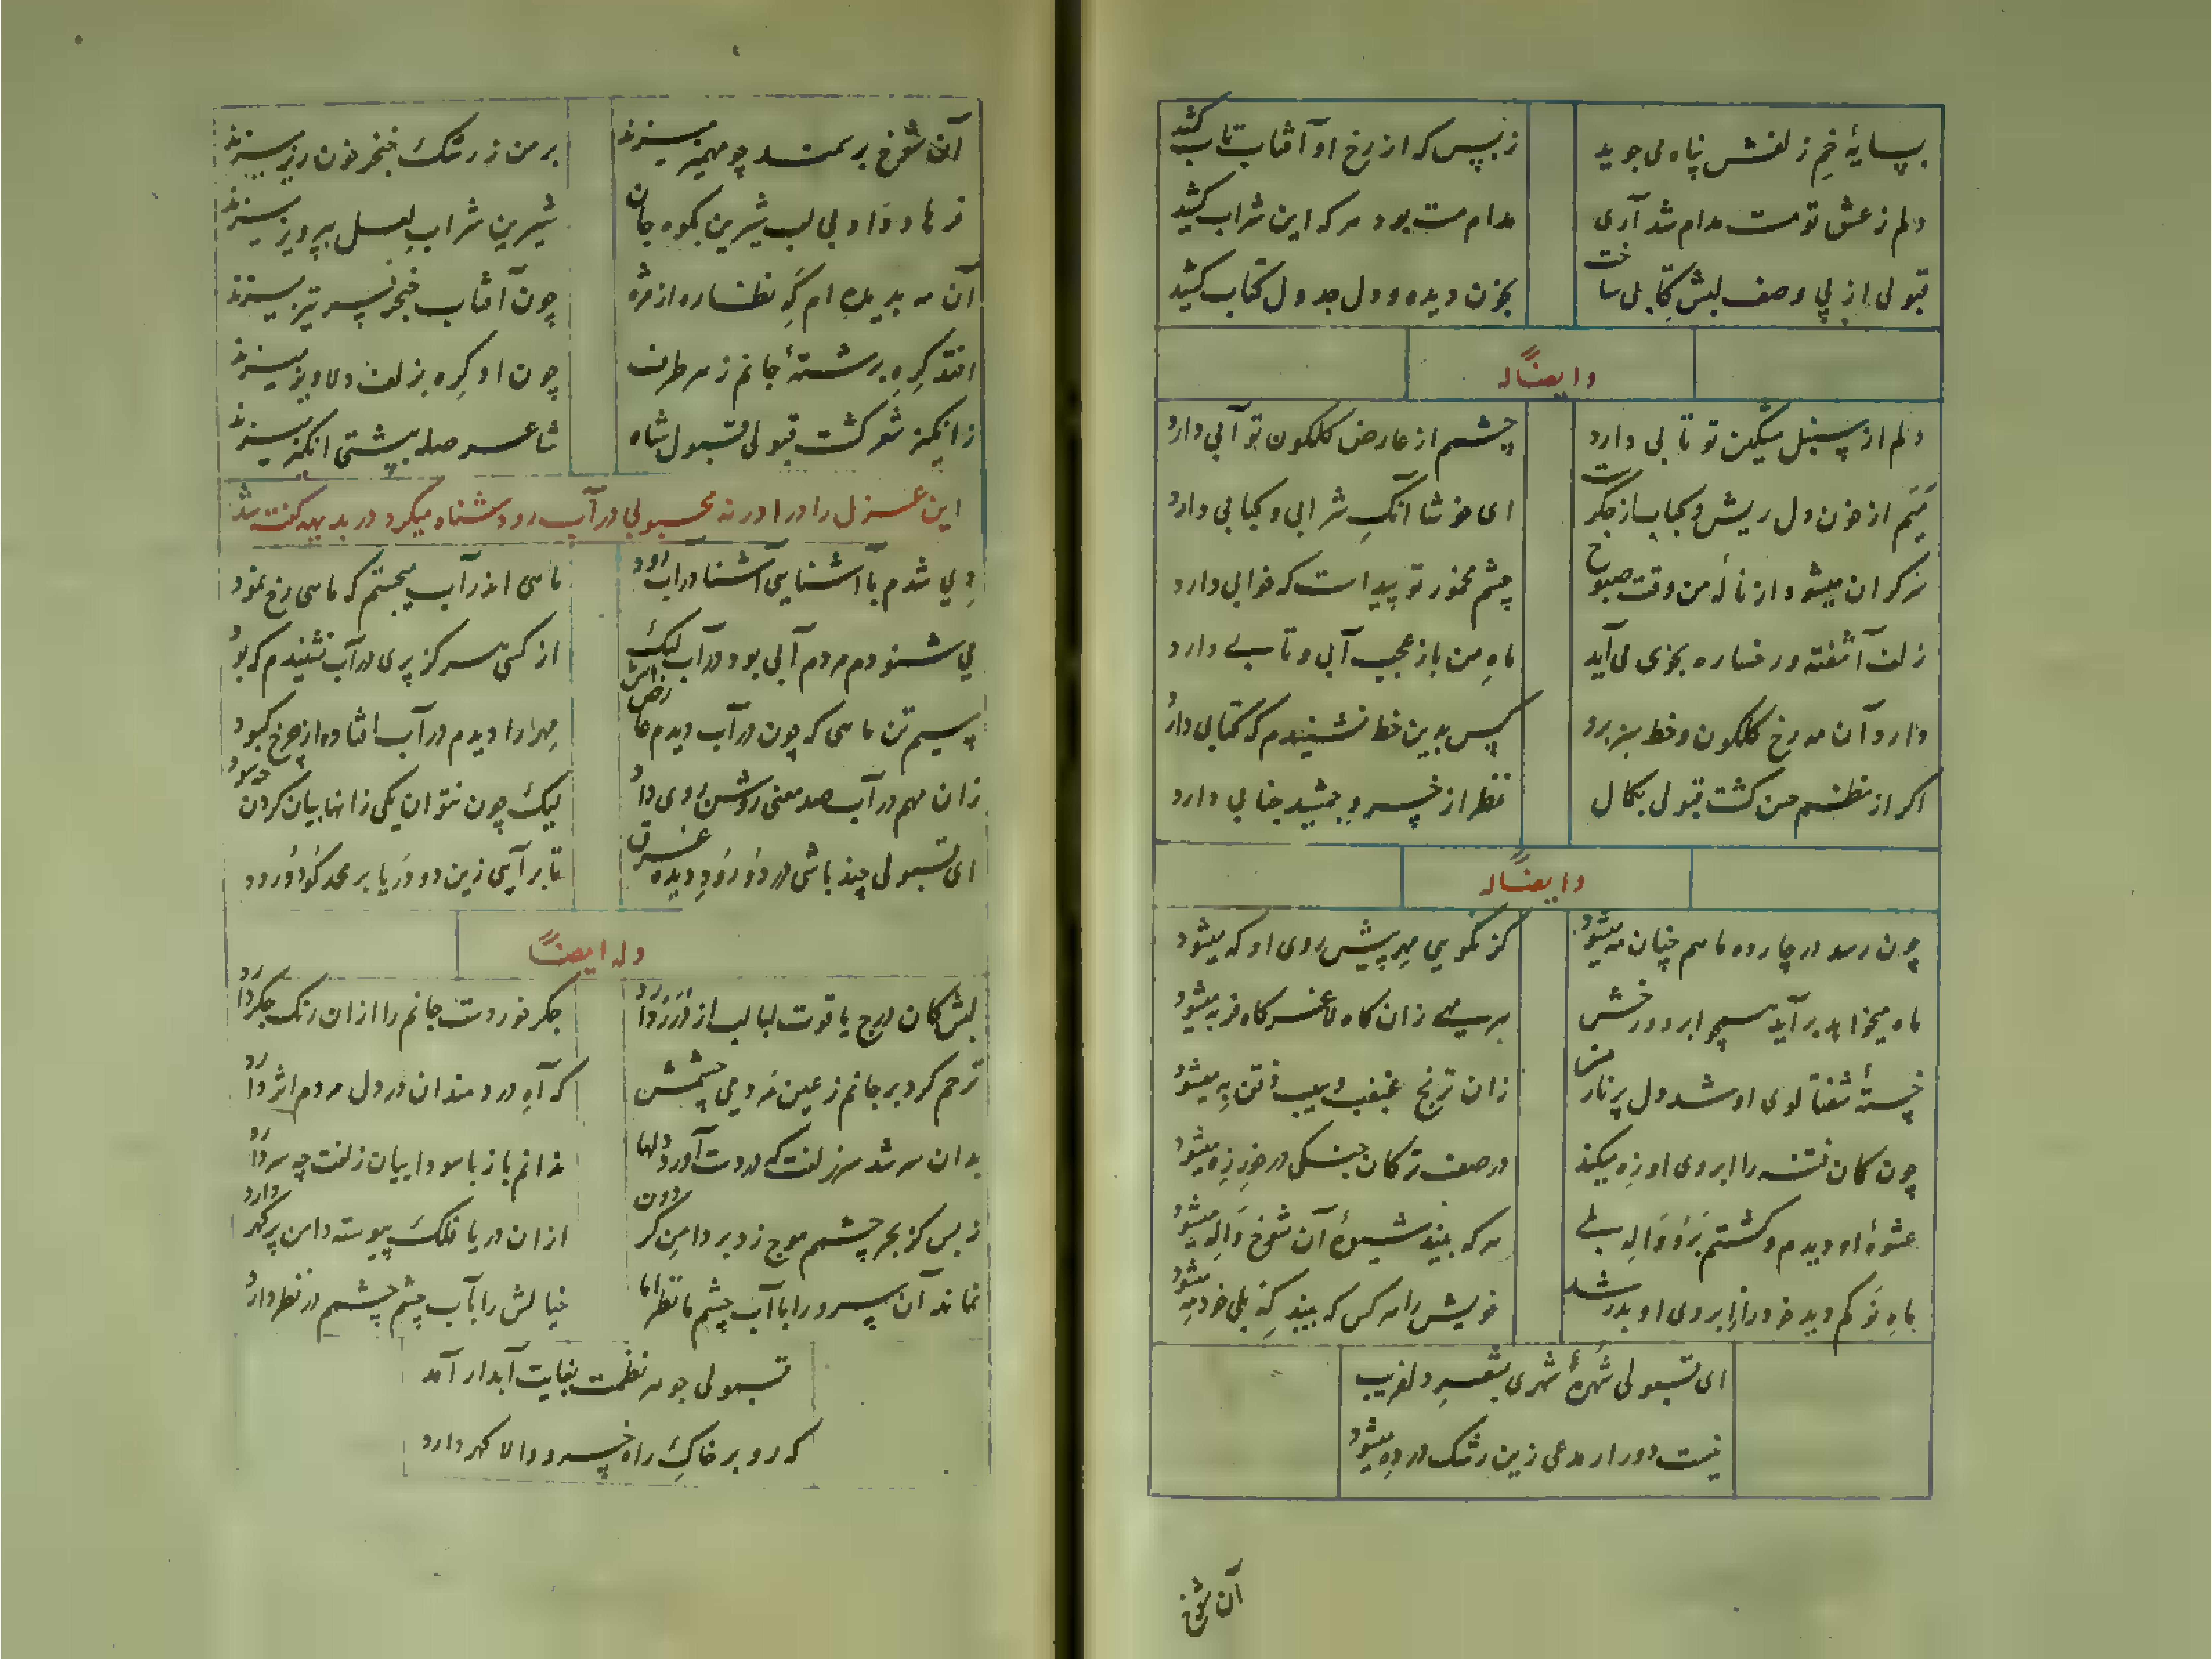 بسایهٔ خم زلفش پناه می جوید
ز بس که از رخ او آفتاب تاب کشید
دلم ز عشق تو مست مدام شد آری
مدام مست بود هر که این شراب کشید
قبولی از پی وصف لبش کتابی ساخت
بخون دیده و دل جدول کتاب کشید
وایضاً له
دلم از سنبل مشکین تو تابی دارد
چشمم از عارض گلگون تو آبی دارد
منم از خون دل ریش و کبابست از جگر
ای خوشا آنک شرابی و کبابی دارد
سر گران میشود از نالهٔ من وقت صبوح
چشم مخمور تو پیداست که خوابی دارد
زلف آشفته و رخساره بخوی می آید
ماه من باز عجب آبی و تابی دارد
دارد آن مه رخ گلگون و خط سبز برو
کس بدین خط نشنیدم که کتابی دارد
اگر از نظم حسن گشت قبولی بکمال
نظر از خسرو جمشید جنابی دارد
وایضاً له
چون رسد در چارده ماهم چنان مه میشود
کز نکویی مهر پیش روی او که میشود
ماه میخواهد برآید همچو ابرو در رخش
هر مهی زان گاه لاغر گاه فربه میشود
خستهٔ شفتالوی او شد دل پر نار من
زان ترنج غبغب و سیب ذقن به میشود
چون کمان فتنه را ابروی او زه میکند
در صف ترکان جنگی در خور زه میشود
عشوهٔ او دیدم و گشتم برو واله بلی
هر که بیند شیوهٔ آن شوخ واله میشود
ماه نو کم دید خود را ز ابروی او بدر شد
خویش را هر کس که بیند که بلی خود مه میشود
ای قبولی شهرهٔ شهری بشعر دلفریب
نیست دور ار مدعی زین رشک در ده میشود
آن شوخ
آن شوخ بر سمند چو مهمیز میزند
بر من ز رشک خنجر خون ریز میزند
فرهاد داد بی لب شیرین بکوه جان
شیرین شراب لعل بپرویز میزند
آن مه بدیده ام گه نظاره از مژه
چون آفتاب خنجر سر تیز میزند
افتد گره برشتهٔ جانم ز هر طرف
چون او گره بزلف دلاویز میزند
زانگیز شعر گشت قبولی قبول شاه
شاعر صلا ببیشتی انگیز میزند
این غزل را در ادرنه محبوبی در آب رود شناه میکرد در بدیهه گفته شد
دی شدم با آشنایی آشنا در آب رود
ماهی اندر آب میجستم که ماهی رخ نمود
می شنودم مردم آبی بود در آب لیک
از کسی هرگز پری در آب نشنیدم که بود
سیم تن ماهی که چون در آب دیدم عارضش
مهر را دیدم در آب افتاده از چرخ کبود
زان مهم در آب صد معنی روشن روی داد
لیک چون نتوان یکی زانها بیان کردن چه سود
ای قبولی چند باشی در دو رود دیده غرق
تا بر آیی زین دو دریا بر محمد گو درود
وله ایضاً
لبش کان درج یاقوتست لبالب از درر دارد
جگر خوردست جانم را از آن رنگ جگر دارد
ترحم کرد بر جانم ز عین مردمی چشمش
که آه دردمندان در دل مردم اثر دارد
بدان سر شد سر زلفت که در دست آورد دلها
ندانم باز با سوداییان زلفت چه سر دارد
ز بس کز بحر چشمم موج زد بر دامن گردون
از آن دریا فلک پیوسته دامن پر گهر دارد
نماند آن سرو را با آب چشم ما نظر اما
خیالش را بآب چشم چشمم در نظر دارد
قبولی جوهر نظمت بغایت آبدار آمد
که رو بر خاک راه خسرو والا گهر دارد